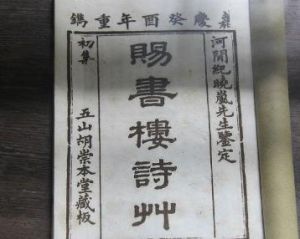 嘉慶癸酉年重鐫
河間紀曉嵐先生鑒定
賜書樓詩艸
初集
五山胡崇本堂藏板